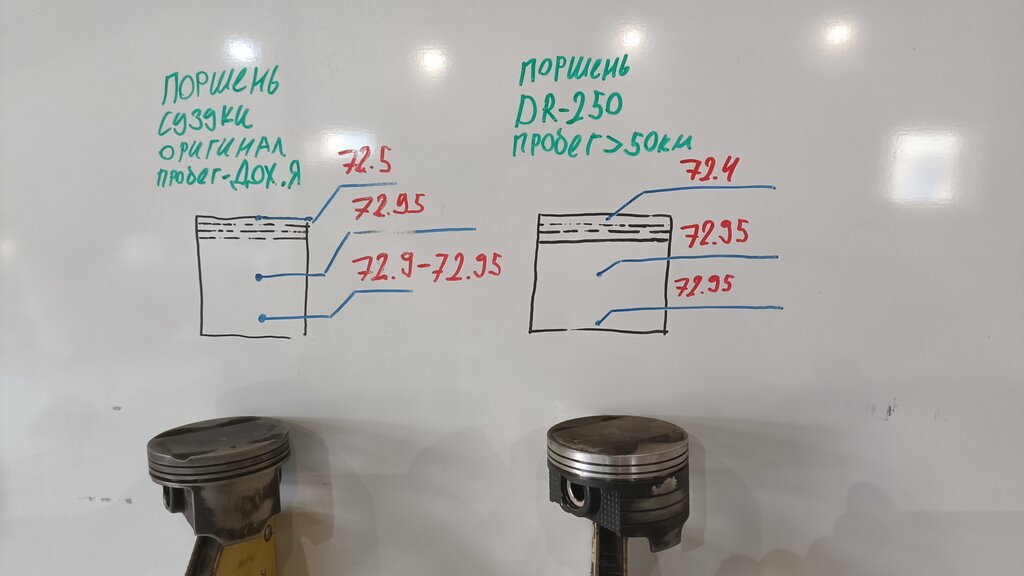 ПОРШЕНЬ
СУЗУКИ
ОРИГИНАЛ
ПРОБЕГ-ДОХ.Я
72.5
72.95
72.9-72.95
ПОРШЕНЬ
DR-250
ПРОБЕГ>50КМ
72.4
72.95
72.95